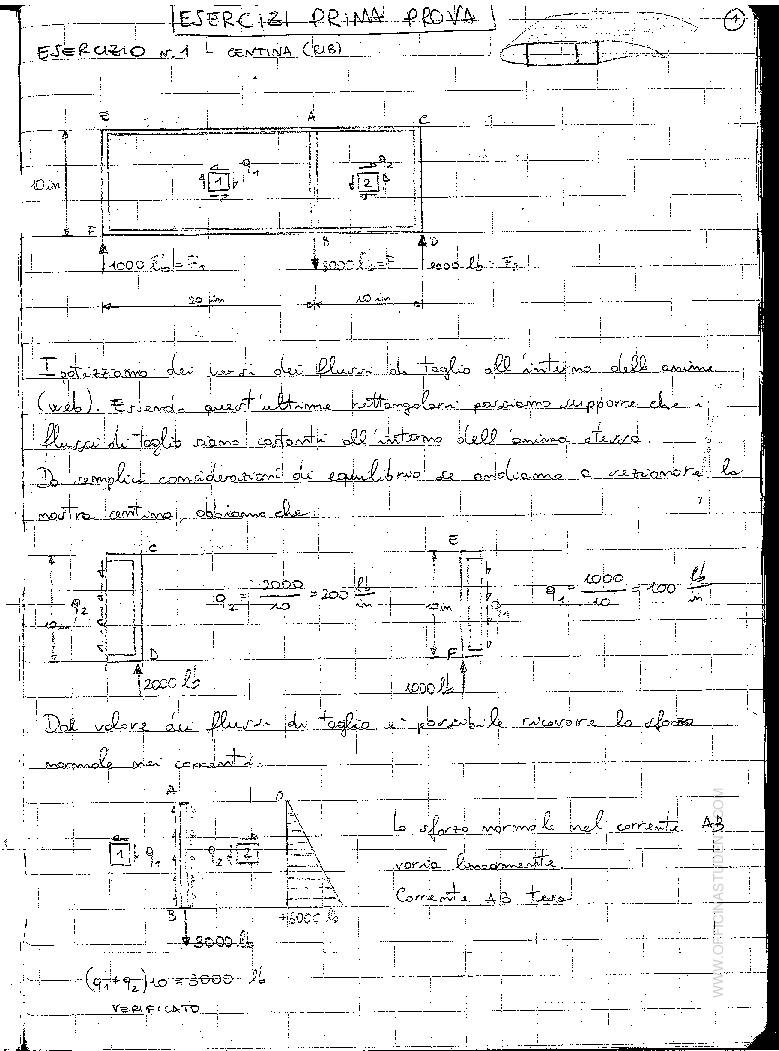 ESERCIZI PRIMA PROVA
1
ESERCIZIO N.1 CENTINA (RIB)
E A C
10 in
1 q1
2 q2
F B D
1000 lb = F1 3000 lb = F 2000 lb = F2
20 in 10 in
Ipotizziamo dei versi dei flussi di taglio all'interno dell'anima
(web). Essendo quest'ultime rettangolari possiamo supporre che i
flussi di taglio siano costanti all'interno dell'anima stessa.
Da semplici considerazioni di equilibrio se andiamo a sezionare la
nostra centina, abbiamo che:
C E
q2 q2 = 2000/10 = 200 lb/in 10 in q1 q1 = 1000/10 = 100 lb/in
D F
2000 lb 1000 lb
Dal valore dei flussi di taglio è possibile ricavare lo sforzo
normale nei correnti.
A 0
Lo sforzo normale nel corrente AB
1 q1 q2 2
varia linearmente.
Corrente AB teso
B +3000 lb
3000 lb
(q1+q2)10 = 3000 lb
VERIFICATO
WWW.OFFICINASTUDENTI.COM